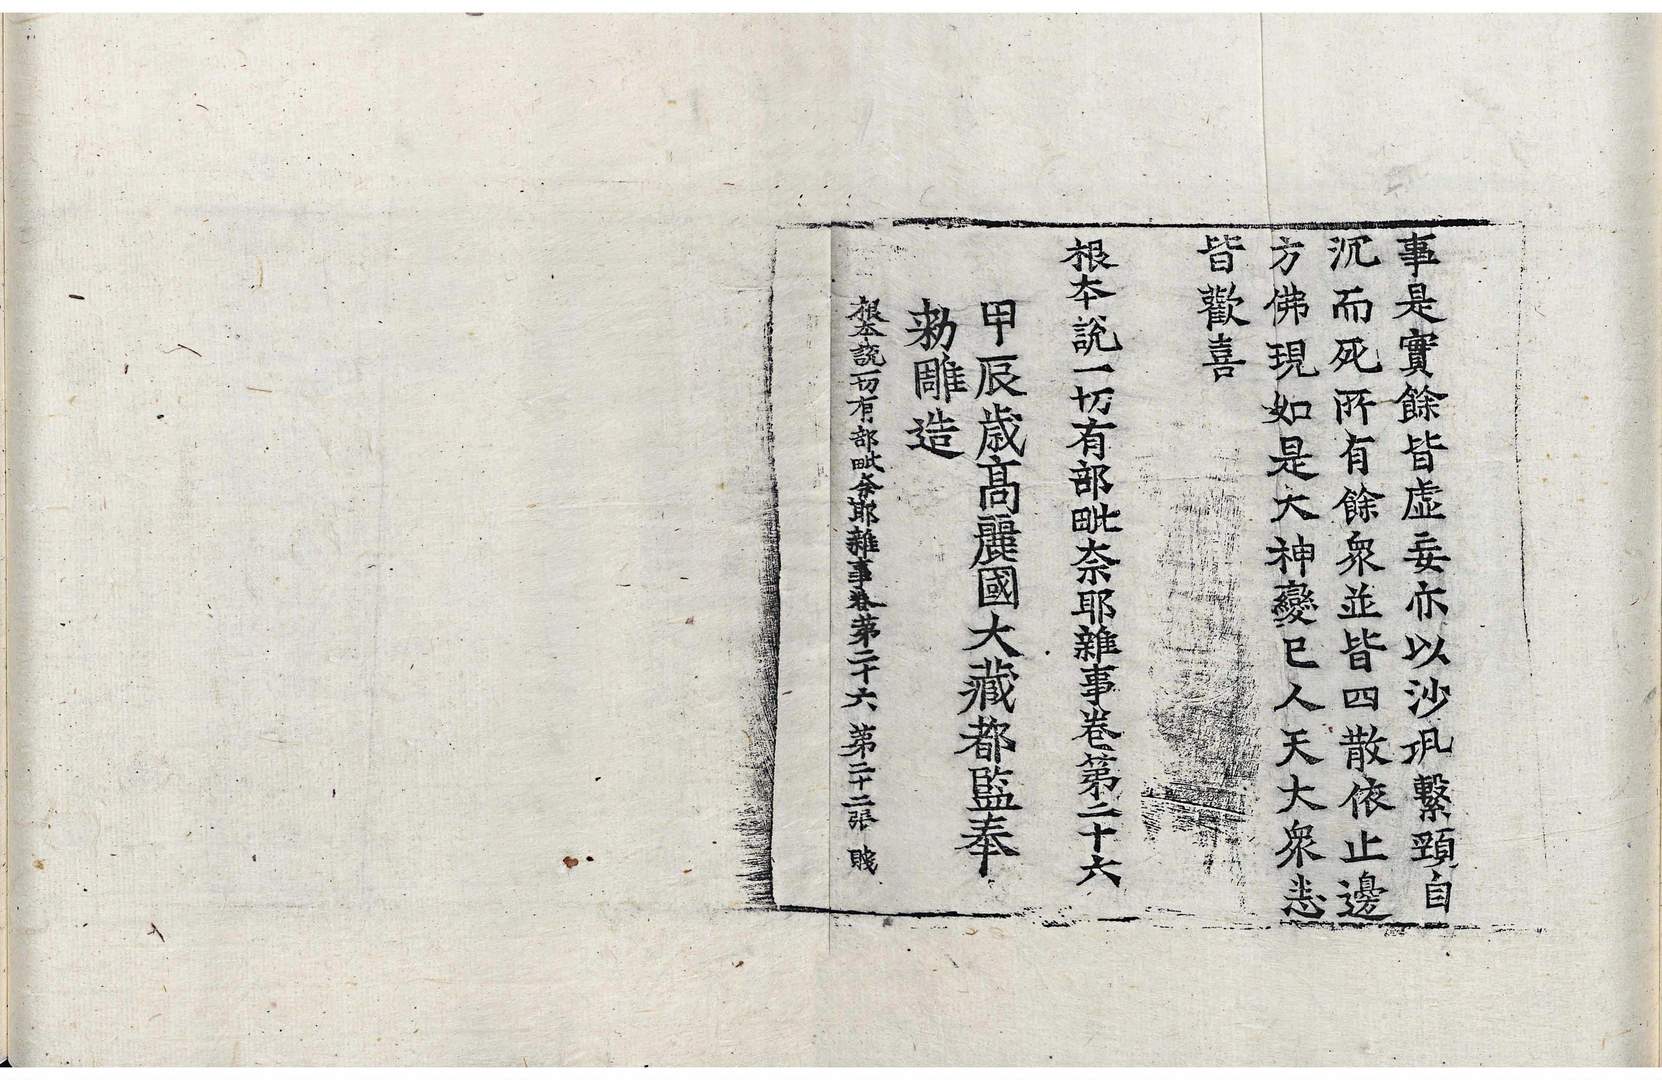 事是實餘皆虛妄亦以沙瓨繫頸自
沉而死所有餘衆並皆四散依止邊
方佛現如是大神變已人天大衆悉
皆歡喜
根本說一切有部毗奈耶雜事卷第二十六
甲辰歲高麗國大藏都監奉
勅雕造
根本說一切有部毗奈耶雜事卷第二十六 第二十二張 賤